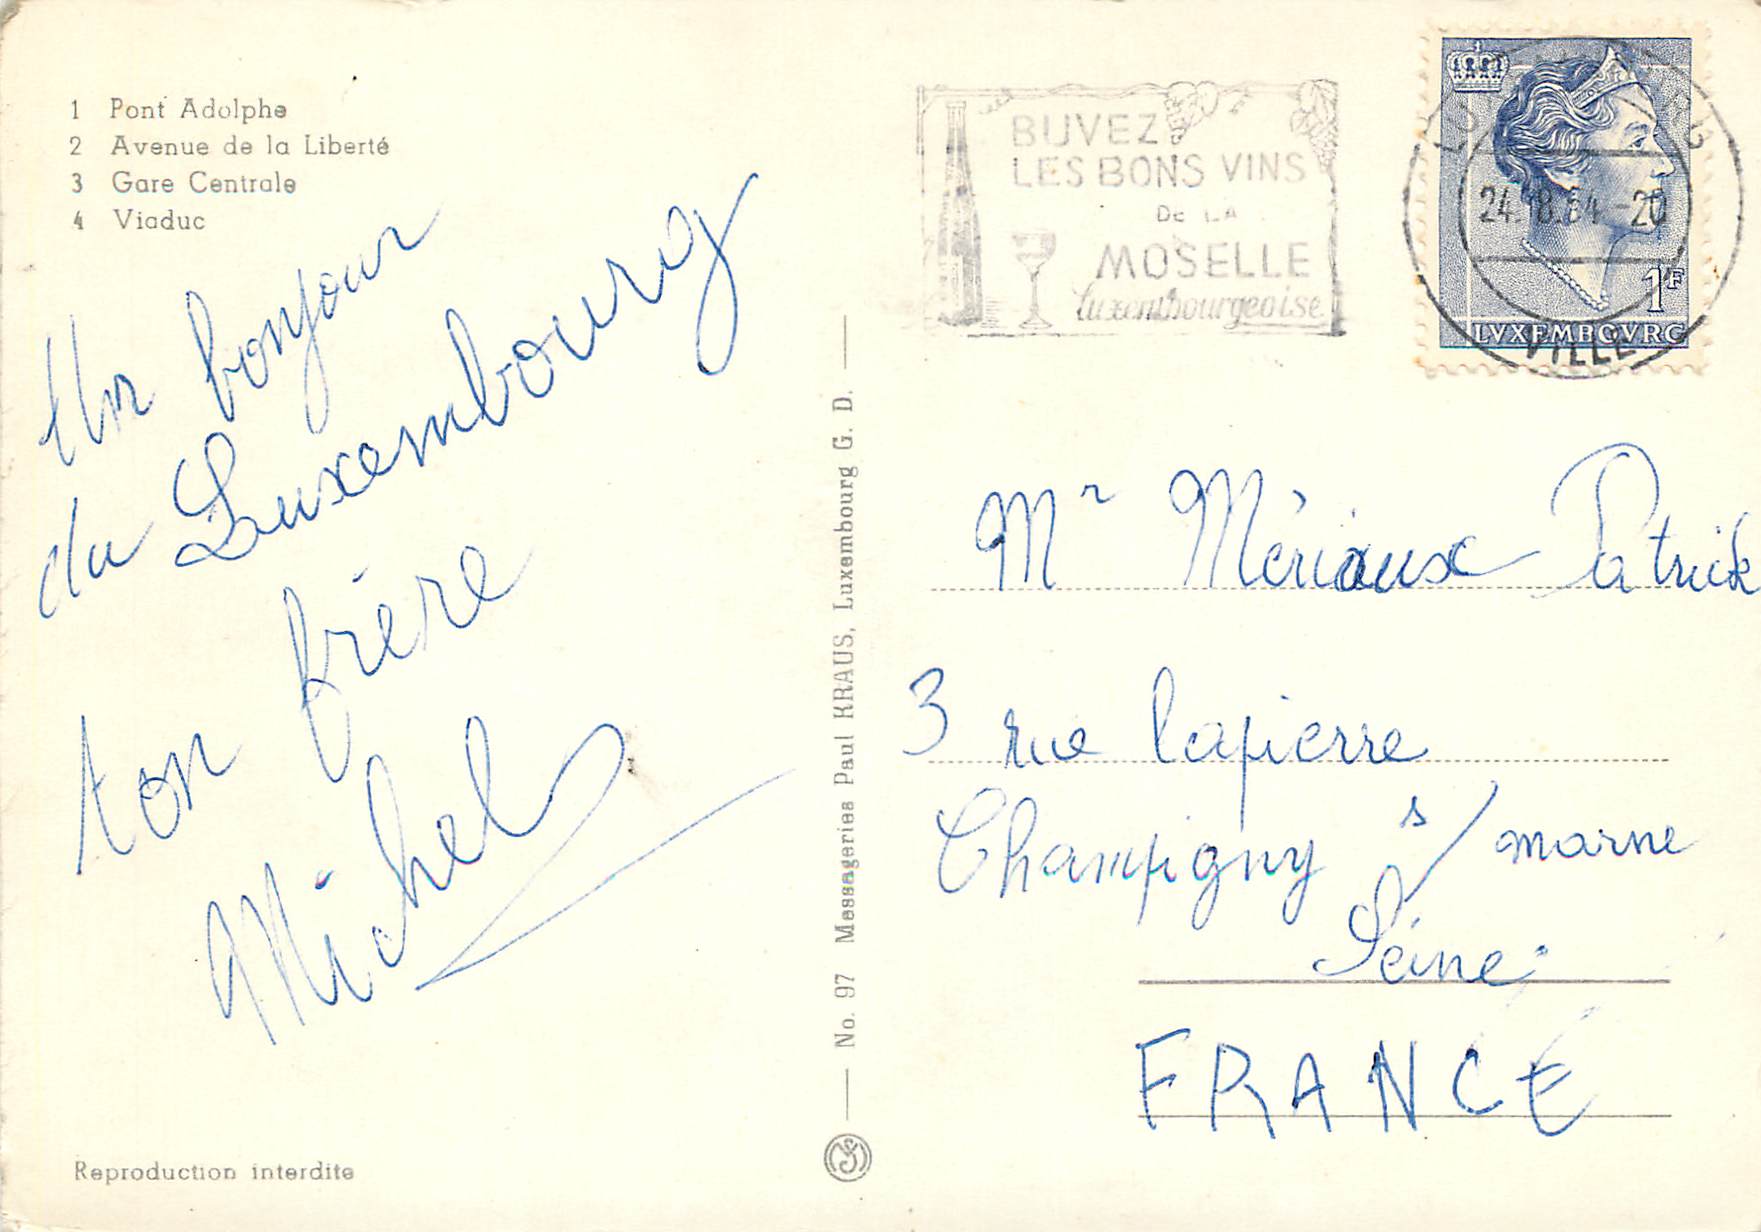 1 Pont Adolphe
2 Avenue de la Liberté
3 Gare Centrale
4 Viaduc
Un bonjour
du Luxembourg
ton frère
Michel
Reproduction interdite
No. 97 Messageries Paul KRAUS, Luxembourg G. D.
BUVEZ
LES BONS VINS
DE LA
MOSELLE
luxembourgeoise
VILLE
1F
LVXEMBOVRG
Mr Mériaux Patrick
3 rue lapierre
Champigny s/ marne
Seine
FRANCE